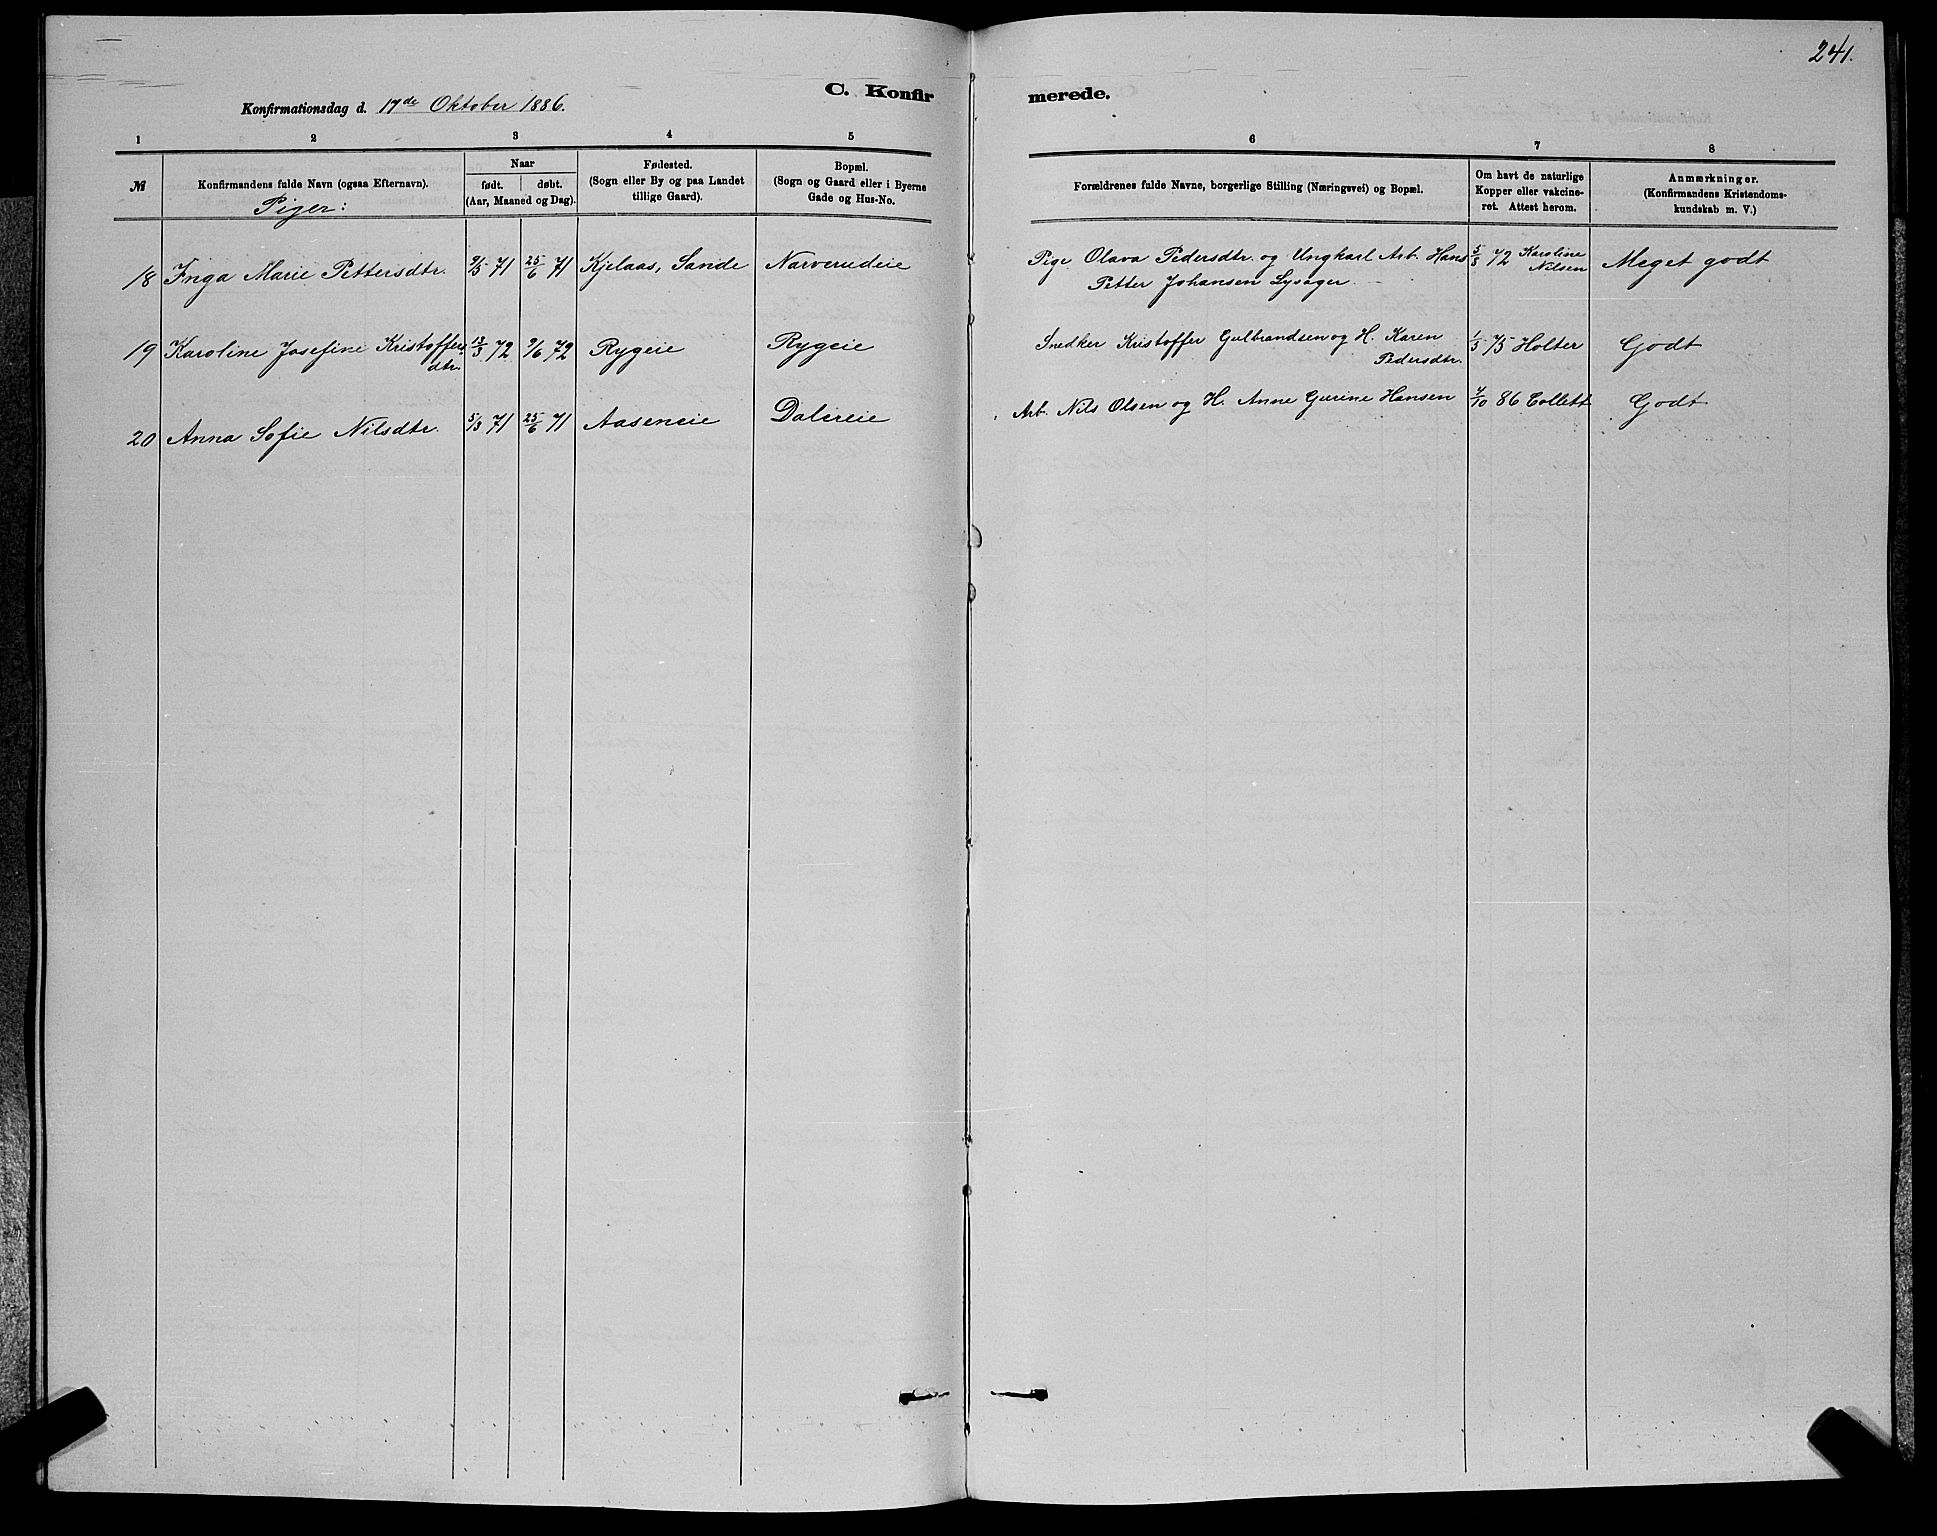 241.
C. Konfirmerede.
Konfirmationsdag d. 17de Oktober 1886.
1 2 3 4 5 6 7 8
№
Konfirmandens fulde Navn (ogsaa Efternavn).
Naar
født. døbt.
(Aar, Maaned og Dag).
Fødested.
(Sogn eller By og paa Landet
tillige Gaard).
Bopæl.
(Sogn og Gaard eller i Byerne
Gade og Hus-No.
Forældrenes fulde Navne, borgerlige Stilling (Næringsvei) og Bopæl.
Om havt de naturlige
Kopper eller vakcine-
ret. Attest herom.
Anmærkninger.
(Konfirmandens Kristendoms-
kundskab m. V.)
Piger:
18 Inga Marie Pettersdtr. 9/5 71 25/6 71 Kjelaas, Sande Narverudeie Pige Olava Pedersdtr. og Ungkarl Arb. Hans 5/8 72 Karoline Meget godt
Petter Johansen Lysager. Nilsen
19 Karoline Josefine Kristoffers- 13/3 72 9/6 72 Rygeie Rygeie Snedker Kristoffer Gulbrandsen og H. Karen 1/5 75 Holter Godt
dtr. Pedersdtr.
20 Anna Sofie Nilsdtr. 5/3 71 25/6 71 Aaseneie Dalereie Arb. Nils Olsen og H. Anne Gurine Hansen 7/10 86 Collett Godt